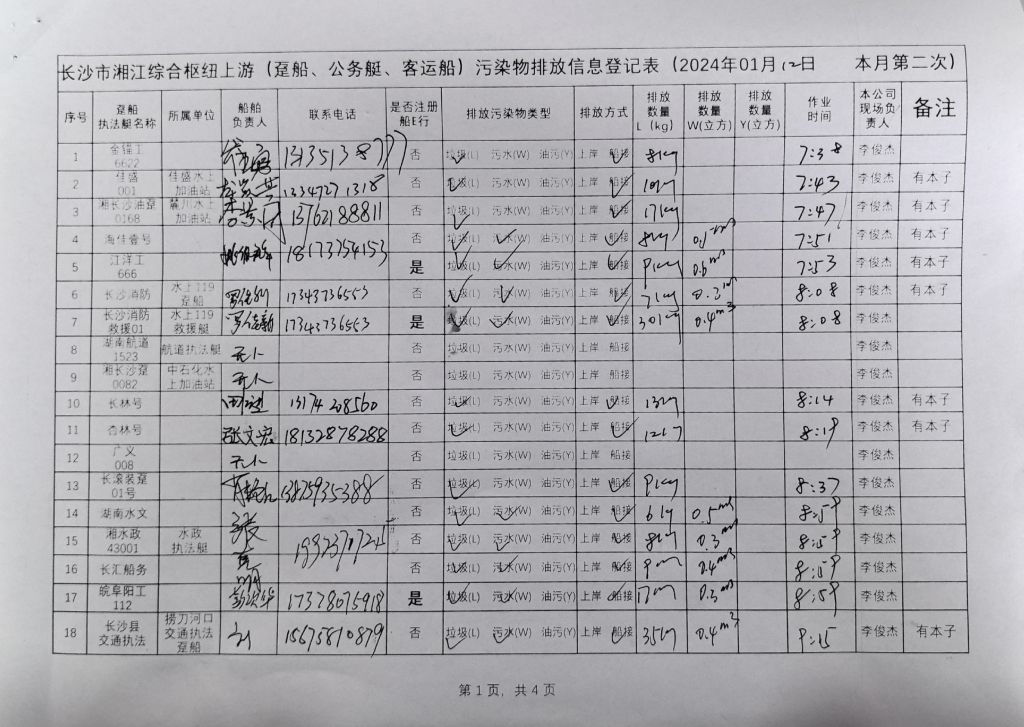 长沙市湘江综合枢纽上游（趸船、公务艇、客运船）污染物排放信息登记表（2024年01月12日 本月第二次）
序号 趸船执法艇名称 所属单位 船舶负责人 联系电话 是否注册船E行 排放污染物类型 排放方式 排放数量L（kg） 排放数量W(立方) 排放数量Y(立方) 作业时间 本公司现场负责人 备注
1 金锚工6622 否 垃圾(L) 污水(W) 油污(Y) 上岸 船接 8kg 7:38 李俊杰
2 佳盛001 佳盛水上加油站 否 垃圾(L) 污水(W) 油污(Y) 上岸 船接 10kg 7:43 李俊杰 有本子
3 湘长沙油趸0168 麓川水上加油站 13762188811 否 垃圾(L) 污水(W) 油污(Y) 上岸 船接 17kg 7:47 李俊杰 有本子
4 海佳壹号 否 垃圾(L) 污水(W) 油污(Y) 上岸 船接 8kg 7:51 李俊杰 有本子
5 江洋工666 18173754153 是 垃圾(L) 污水(W) 油污(Y) 上岸 船接 9kg 0.6m3 7:53 李俊杰 有本子
6 长沙消防 水上119趸船 17343736553 否 垃圾(L) 污水(W) 油污(Y) 上岸 船接 71kg 0.3m3 8:08 李俊杰 有本子
7 长沙消防救援01 水上119救援艇 17343736553 是 垃圾(L) 污水(W) 油污(Y) 上岸 船接 0.4m3 8:08 李俊杰
8 湖南航道1523 航道执法艇 无人 否 垃圾(L) 污水(W) 油污(Y) 上岸 船接 李俊杰
9 湘长沙趸0082 中石化水上加油站 无人 否 垃圾(L) 污水(W) 油污(Y) 上岸 船接 李俊杰
10 长林号 13174208560 否 垃圾(L) 污水(W) 油污(Y) 上岸 船接 13kg 8:14 李俊杰 有本子
11 杏林号 张文宏 18132878288 否 垃圾(L) 污水(W) 油污(Y) 上岸 船接 8:19 李俊杰 有本子
12 广义008 无人 否 垃圾(L) 污水(W) 油污(Y) 上岸 船接 李俊杰
13 长滚装趸01号 13875935388 否 垃圾(L) 污水(W) 油污(Y) 上岸 船接 9kg 8:37 李俊杰
14 湖南水文 否 垃圾(L) 污水(W) 油污(Y) 上岸 船接 6kg 0.5m3 8:59 李俊杰
15 湘水政43001 水政执法艇 否 垃圾(L) 污水(W) 油污(Y) 上岸 船接 8kg 0.3m3 8:59 李俊杰
16 长汇船务 否 垃圾(L) 污水(W) 油污(Y) 上岸 船接 0.4m3 8:59 李俊杰
17 皖阜阳工112 17378075918 是 垃圾(L) 污水(W) 油污(Y) 上岸 船接 0.3m3 8:59 李俊杰
18 长沙县交通执法 捞刀河口交通执法趸船 15675810879 否 垃圾(L) 污水(W) 油污(Y) 上岸 船接 35kg 0.4m3 9:15 李俊杰 有本子
第 1 页，共 4 页